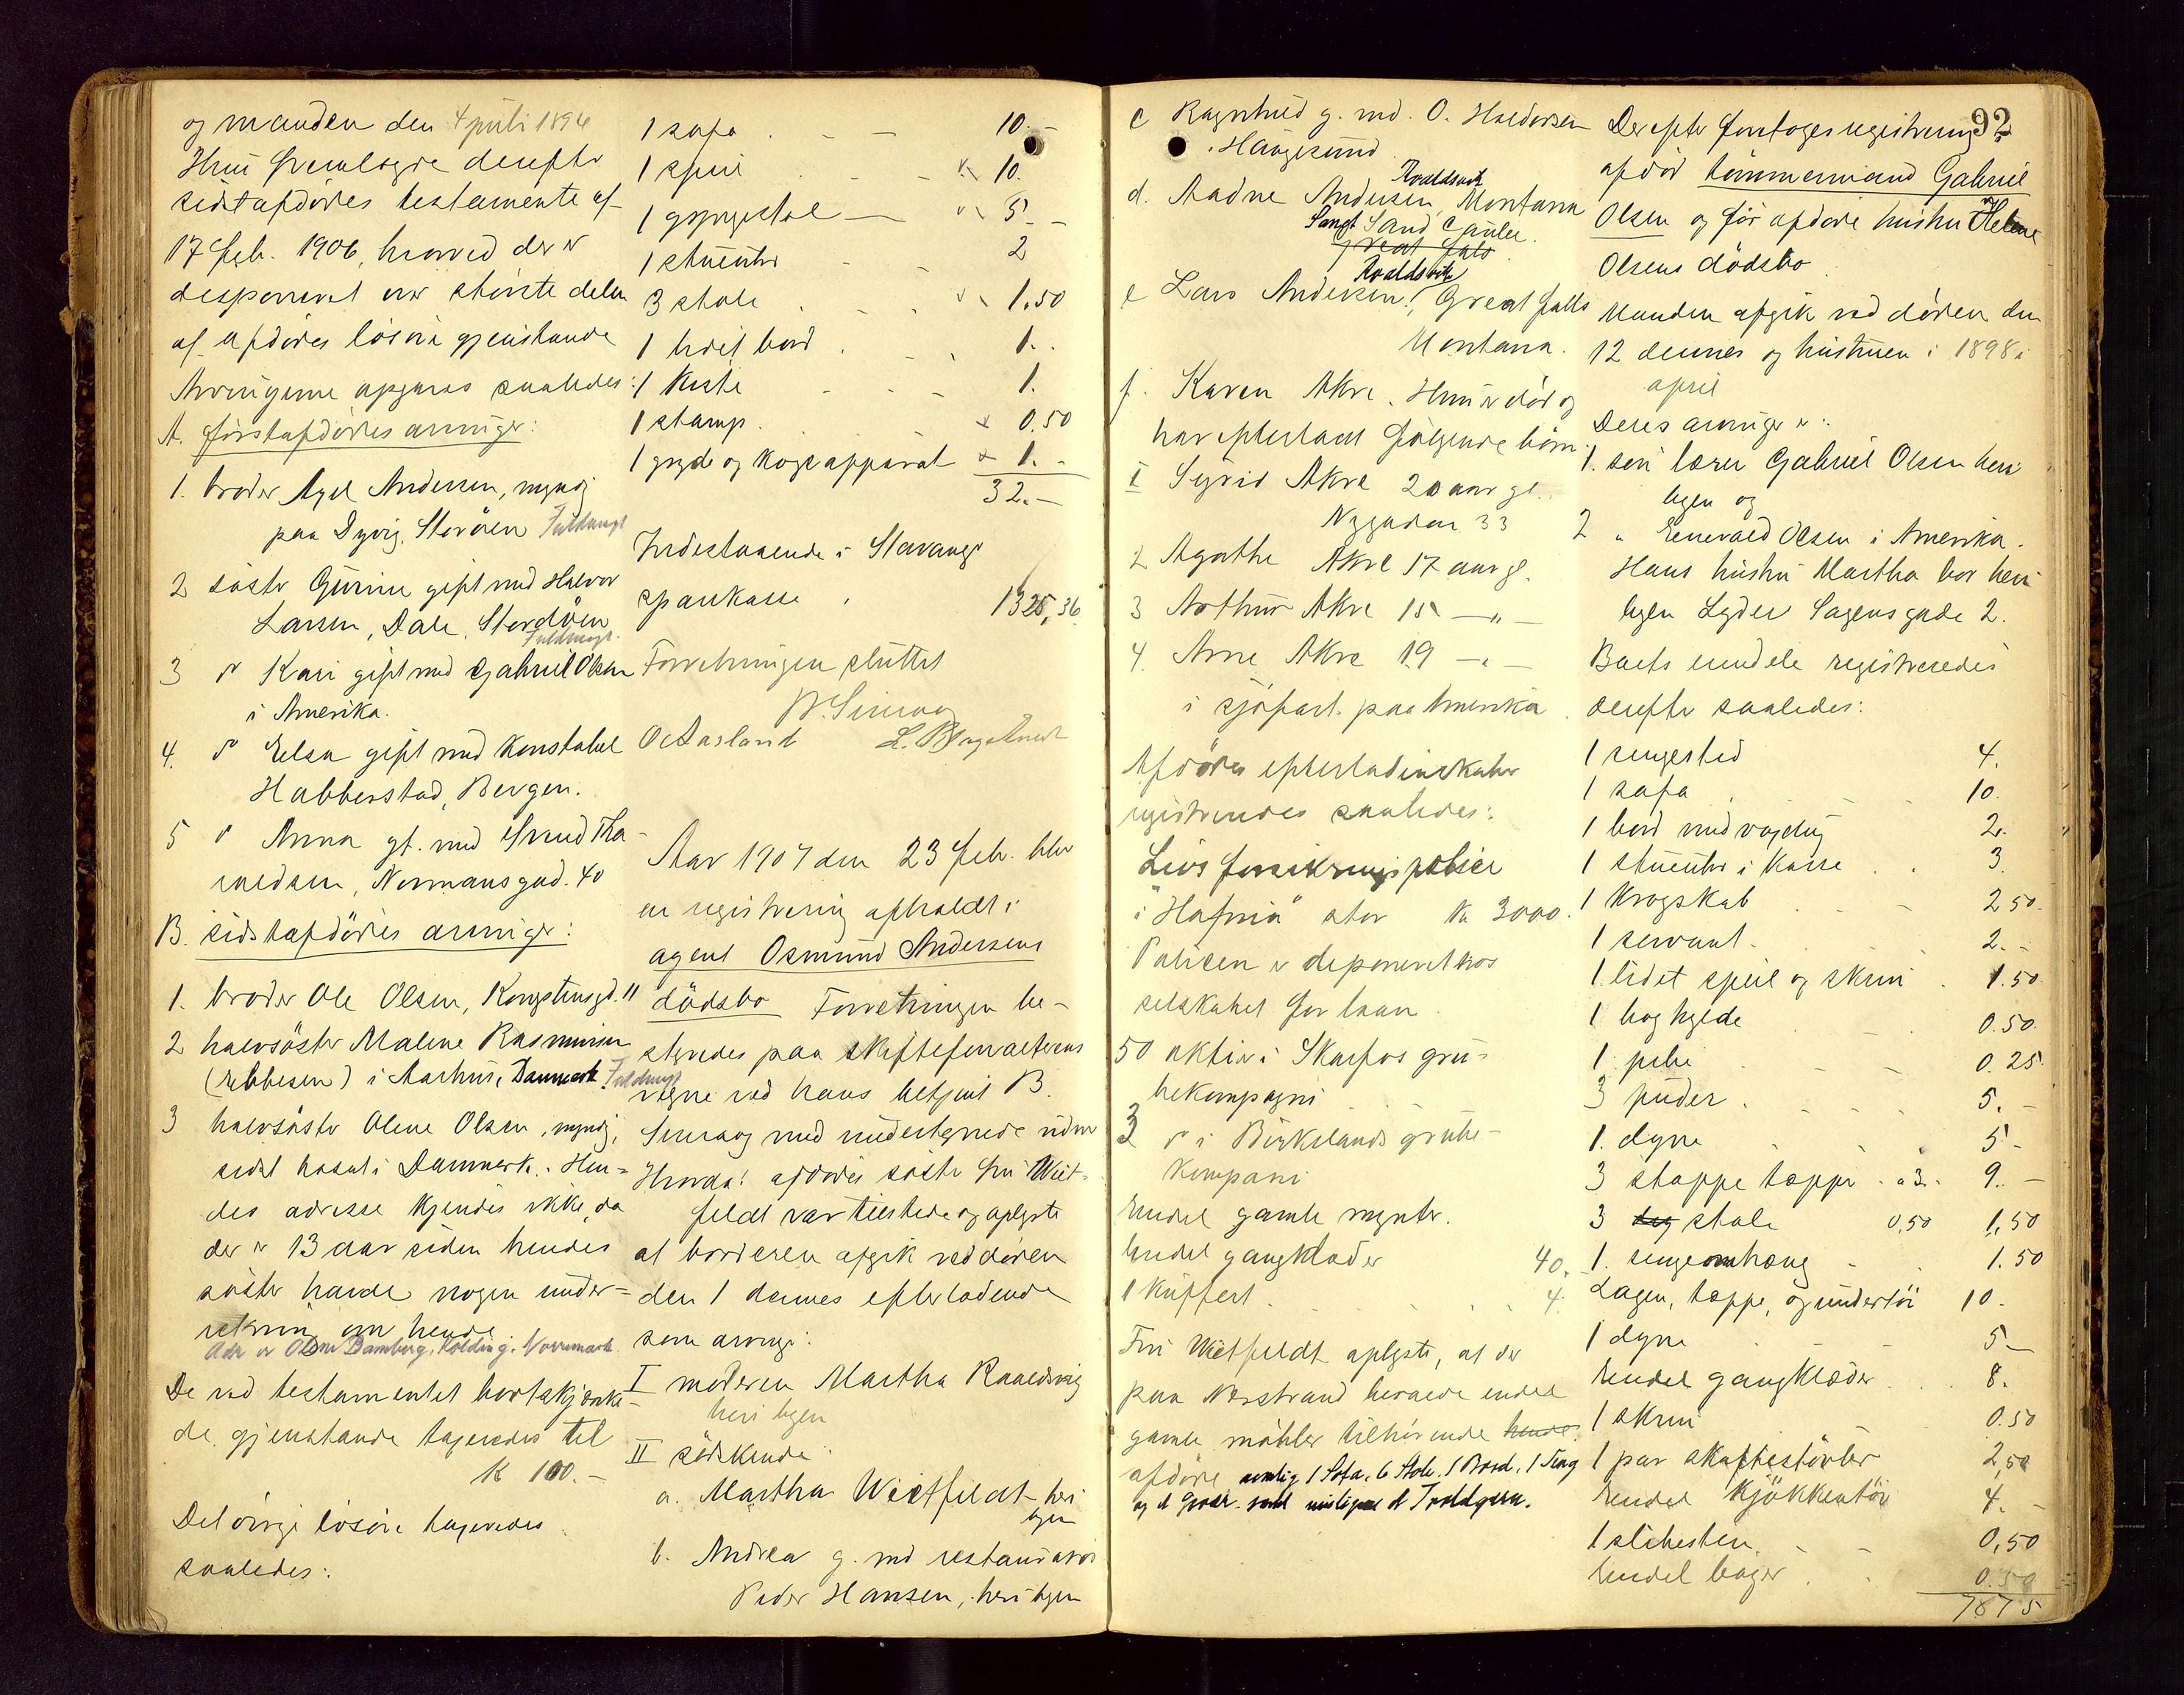 og manden den 4 juli 1894
Hun fremlagde derefter
sidstafdödes testamente af
17 febr. 1906, hvorved der er
disponeret over störste delen
af afdödes lösöre gjenstande
Arvingerne opgaves saaledes:
A. förstafdödes arvinger:
1. broder Agel Andersen, myndig
paa Dyvig, Stordöen Fuldmagt
2 söster Gurine gift med Halvor
Larsen, Dale, Stordöen
Fuldmagt.
3 " Kari gift med Gabriel Olsen
i Amerika.
4. " Elsa gift med Konstabel
Habberstad, Bergen.
5 " Anna gt. med Svend Tha-
raldsen, Normansgad. 40
B. sidstafdödes arvinger:
1. broder Ole Olsen, Kongstensgd. 11
2 halvsöster Malene Rasmussen
(Ebbesen) i Aarhus, Danmark. Fuldmagt
3 halvsöster Olene Olsen, myndig,
sidst bosat i Danmark. Hen=
des adresse kjendes ikke, da
der er 13 aar siden hendes
söster havde nogen under=
retning om hende
Adr er Olene Bamberg, Kolding, Nørremark
De ved testamentet bortskjænke-
de gjenstande taxeredes til
K 100.-
Det övrige lösöre taxeredes
saaledes:
1 sofa 10.-
1 speil 10.
1 gyngestol 5.-
1 stueuhr 2
3 stole 1.50
1 lidet bord 1.
1 kiste 1.
1 stamp 0.50
1 gryde og kogeapparat 1.-
32.-
Indestaaende i Stavanger
sparekasse 1325,36
Forretningen sluttet
B. Simrag
O Aasland
Aar 1907 den 23 febr. blev
en registrering afholdt i
agent Osmund Andersens
dödsbo Forretningen be-
styredes paa skifteforvalterens
vegne ved hans betjent B.
Simrag med undertegnede vidner
Hvorda: afdödes söster fru Wiet-
feldt var tilstede og oplyste
at broderen afgik ved döden
den 1 dennes efterladende
som arvinger:
I moderen Martha Roaldsvig
her i byen
II södskende:
a. Martha Wietfeldt her i
byen
b. Andrea g. med restauratör
Peder Hansen, her i byen
92
c Ragnhild g. med. O. Haldorsen
Haugesund
Roaldsvik
d. Aadne Andersen, Montana
Sand Caulee.
Great fals
Roaldsvik
e Lars Andersen, Great falls
Montana.
f. Karen Akre. Hun er död og
har efterladt følgende börn:
I Sigrid Akre 20 aar gl.
Nygaden 33
2 Agathe Akre 17 aar gl.
3 Arthur Akre 15 -"-
4. Arne Akre 19 -"-
i sjöfart paa Amerika
Afdödes efterladenskaber
registreredes saaledes:
Livsforsikringspolice
i "Hafnia" stor Kr 3000.
Policen er deponeret hos
selskabet for laan
50 aktier i Skarfos gru-
bekompagni
3 " i Birkelands grube-
kompani
Endel gamle mynter.
Endel gangklæder 40.
1 kuffert 4.
Fru Wietfeldt oplyste, at der
paa Nerstrand beroede endel
gamle möbler tilhörende hende
afdöde nemlig 1 Sofa, 6 Stole, 1 Bord, 1 Seng
Derefter foretoges registrering
afdöd tömmermand Gabriel
Olsen og för afdöde hustru Helene
Olsens dödsbo
Manden afgik ved döden den
12 dennes og hustruen i 1898 i
april
Deres arvinger er:
1. sön lærer Gabriel Olsen her i
byen og
2 " Enevald Olsen i Amerika.
Hans hustru Martha bor her i
byen Lyder Sagens gade 2.
Boets eiendele registreredes
derefter saaledes:
1 sengested 4.
1 sofa 10.
1 bord med voxdug 2.
1 stueuhr i kasse 3.
1 krogskab 2 50.
1 servant 2.-
1 lidet speil og skrin 1.50
1 boghylde 0.50.
1 pibe 0.25
3 puder 5.-
1 dyne 5-
3 stoppetæppe a 3. 9.-
3 stole 0,50 1,50
1 sengeomhæng 1.50
Lagen, tæppe, og undertöi 10.
1 dyne 5-
Endel gangklæder 8.
1 skrin 0.50
1 par skaftestövler 2,50
Endel kjökkentöi 4.-
1 slibesten 0,50
Endel bøger 0.50
78 75